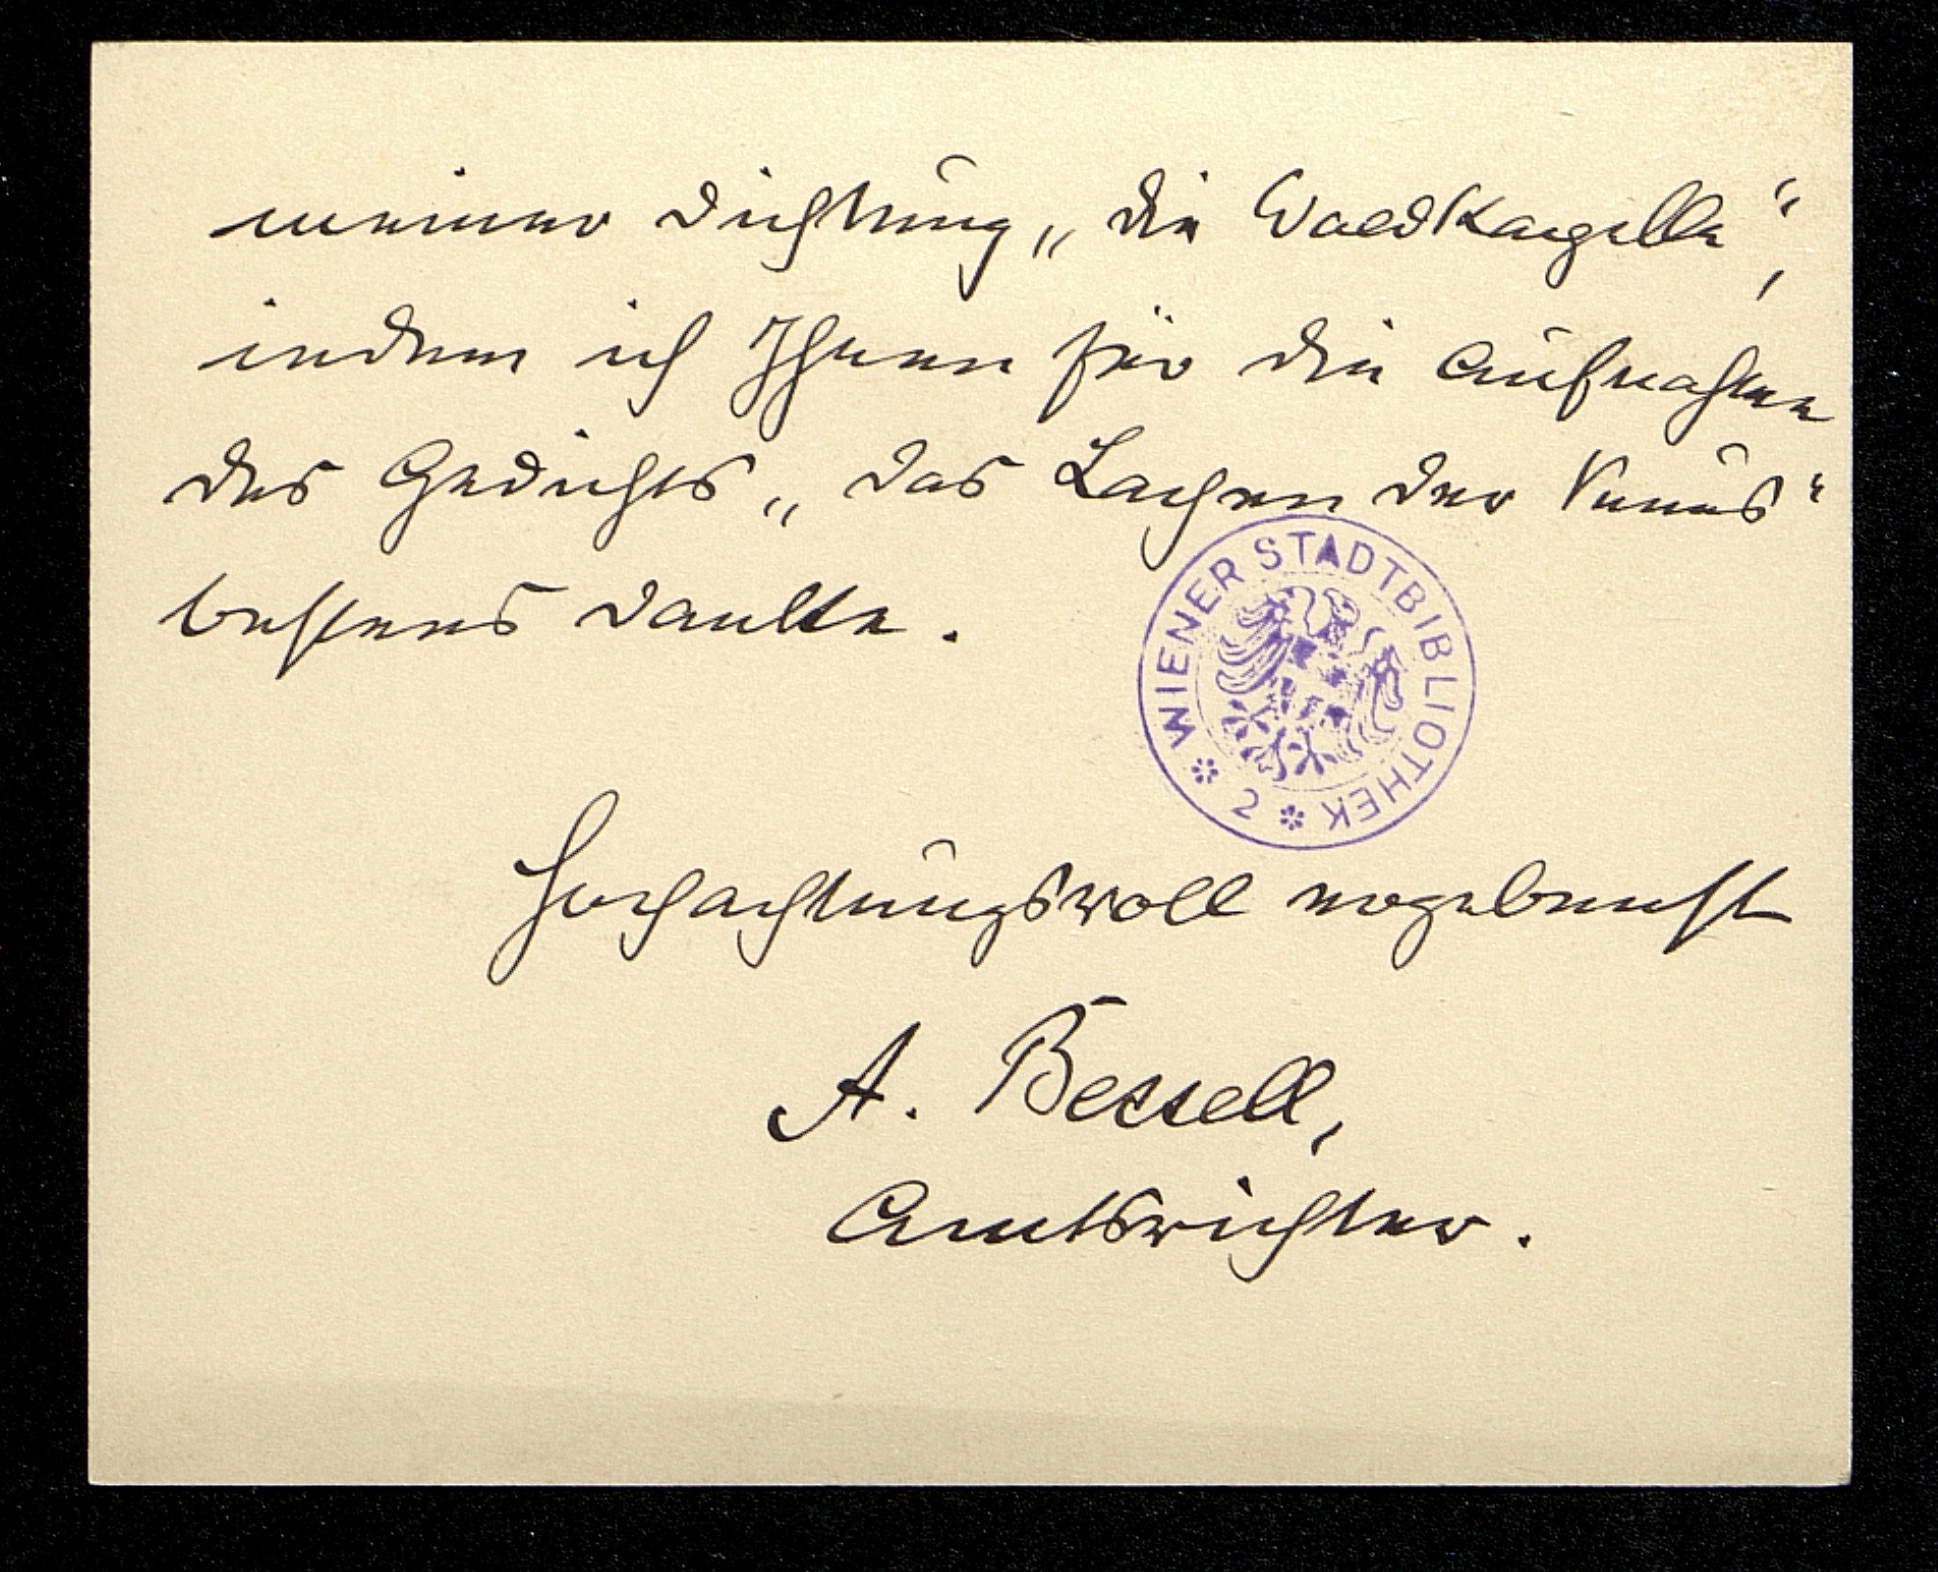 meiner Dichtung „die Waldkapelle“,
indem ich Ihnen für die Aufnahme
des Gedichts „das Lachen der Venus“
bestens danke.
WIENER STADTBIBLIOTHEK
2
Hochachtungsvoll ergebenst
A. Bessell,
Amtsrichter.